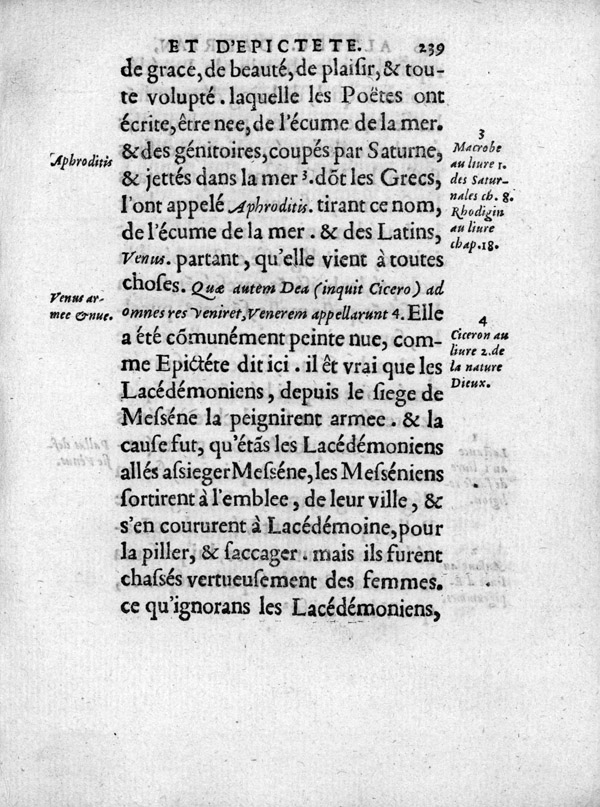 ET D'EPICTETE. 239
de grace, de beauté, de plaiſir, & tou-
te volupté. laquelle les Poëtes ont
écrite, être nee, de l'écume de la mer.
& des génitoires, coupés par Saturne,
& jettés dans la mer 3. dõt les Grecs,
l'ont appelé Aphroditis. tirant ce nom,
de l'écume de la mer. & des Latins,
Venus. partant, qu'elle vient à toutes
choſes. Quæ autem Dea (inquit Cicero) ad
omnes res veniret, Venerem appellarunt 4. Elle
a été cõmunément peinte nue, com-
me Epictéte dit ici. il êt vrai que les
Lacédémoniens, depuis le ſiege de
Meſſéne la peignirent armee. & la
cauſe fut, qu'étãs les Lacédémoniens
allés aſsieger Meſſéne, les Meſſéniens
ſortirent à l'emblee, de leur ville, &
s'en coururent à Lacédémoine, pour
la piller, & ſaccager. mais ils furent
chaſſés vertueuſement des femmes.
ce qu'ignorans les Lacédémoniens,
Aphroditis
Venus ar-
mee & nue.
3
Macrobe
au liure 1.
des Satur-
nales ch. 8.
Rhodigin
au liure
chap. 18.
4
Ciceron au
liure 2. de
la nature
Dieux.